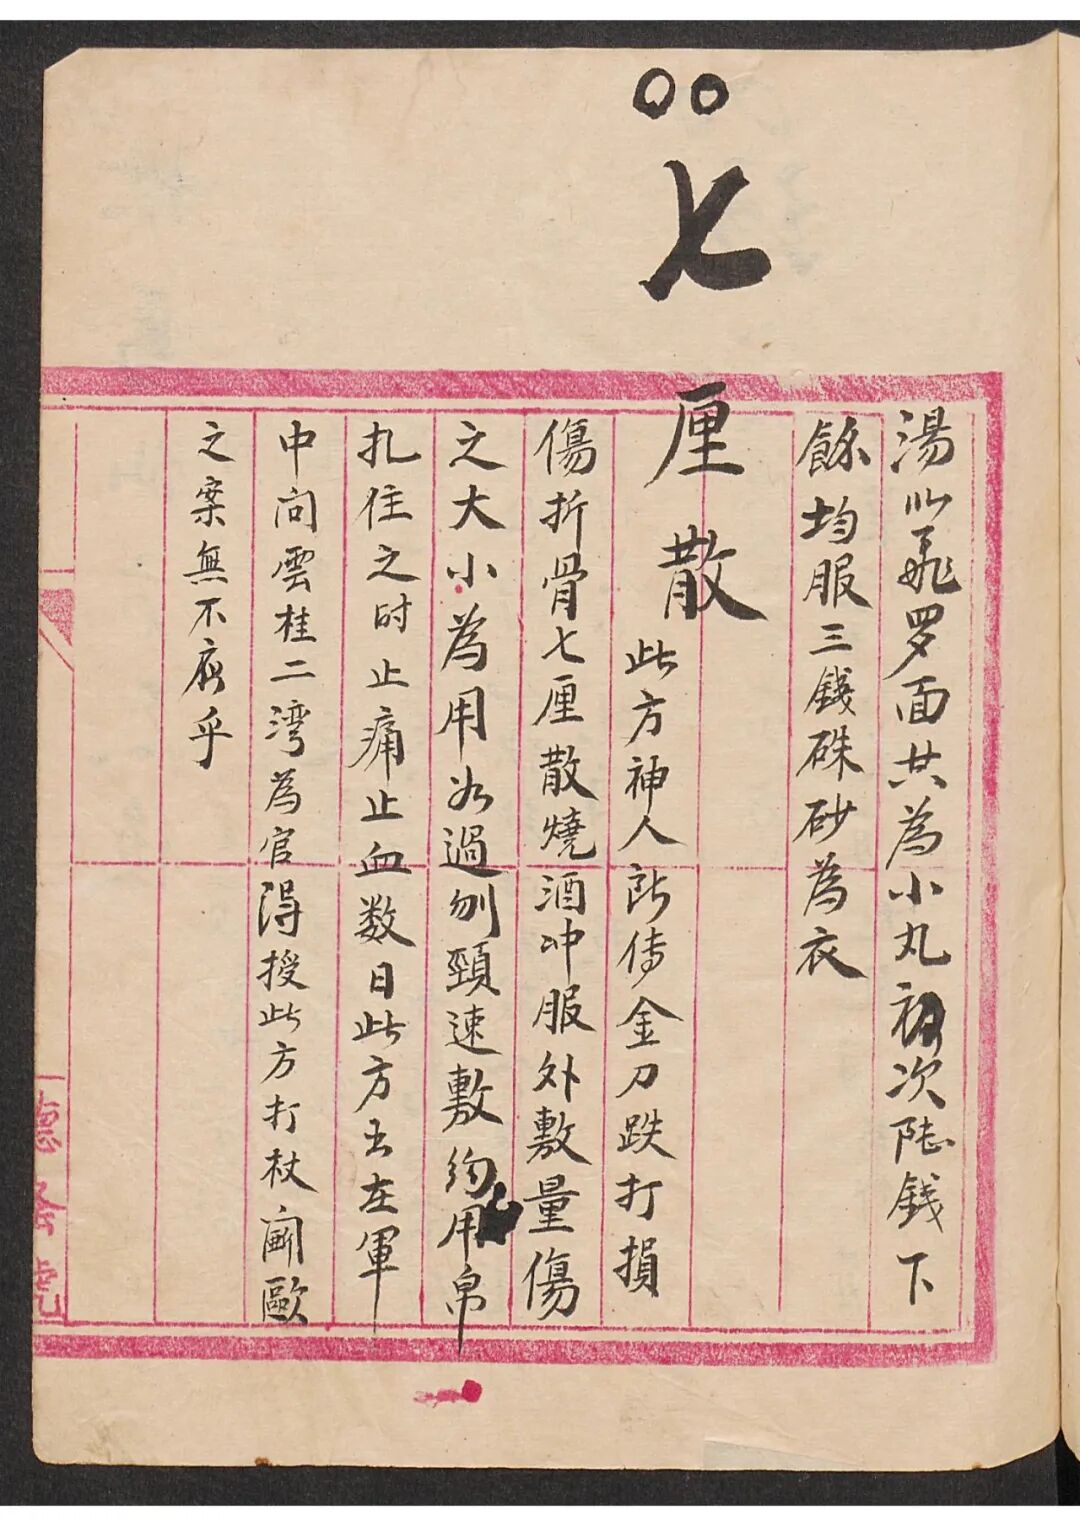 湯以荞罗面共為小丸初次陸錢下
餘均服三錢硃砂為衣
七厘散
此方神人所傳金刀跌打損
傷折骨七厘散燒酒冲服外敷量傷
之大小為用如過刎頸速敷約用帛
扎住之时止痛止血数日此方出在軍
中向雲桂二湾為官得授此方打杖鬭歐
之案無不應乎
德發號